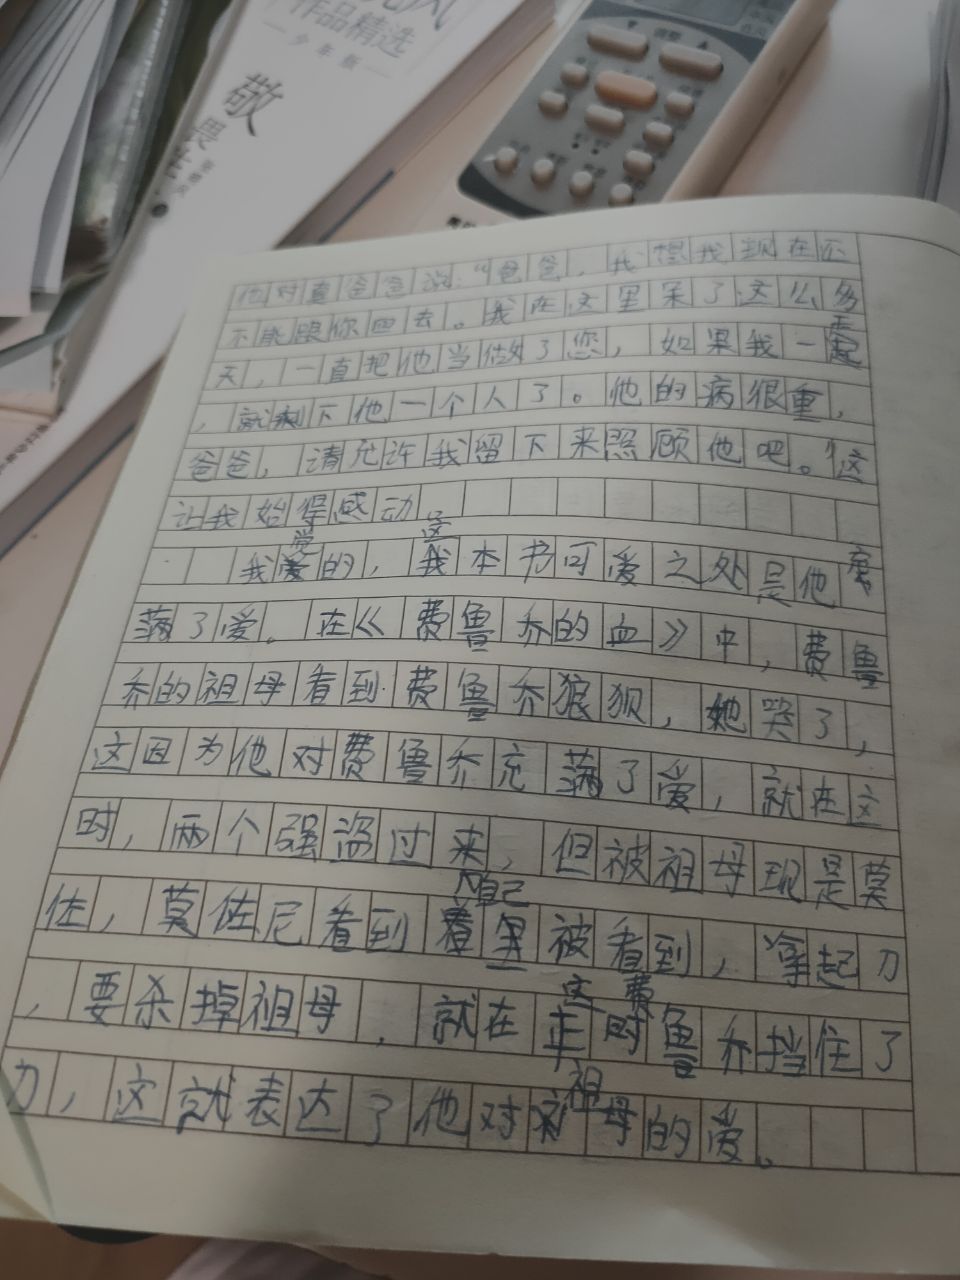 作品精选
少年版
敬畏
调整
他对真爸爸说：“爸爸，我想我现在还
不能跟你回去。我在这里呆了这么多
天，一直把他当做了您，如果我一走
，就剩下他一个人了。他的病很重，
爸爸，请允许我留下来照顾他吧。”这
让我始得感动
我觉的，这本书可爱之处是他充
满了爱。在《费鲁乔的血》中，费鲁
乔的祖母看到费鲁乔狼狈，她哭了，
这因为他对费鲁乔充满了爱，就在这
时，两个强盗过来，但被祖母现是莫
佐，莫佐尼看到自己被看到，拿起刀
，要杀掉祖母，就在这时费鲁乔挡住了
刀，这就表达了他对祖母的爱。